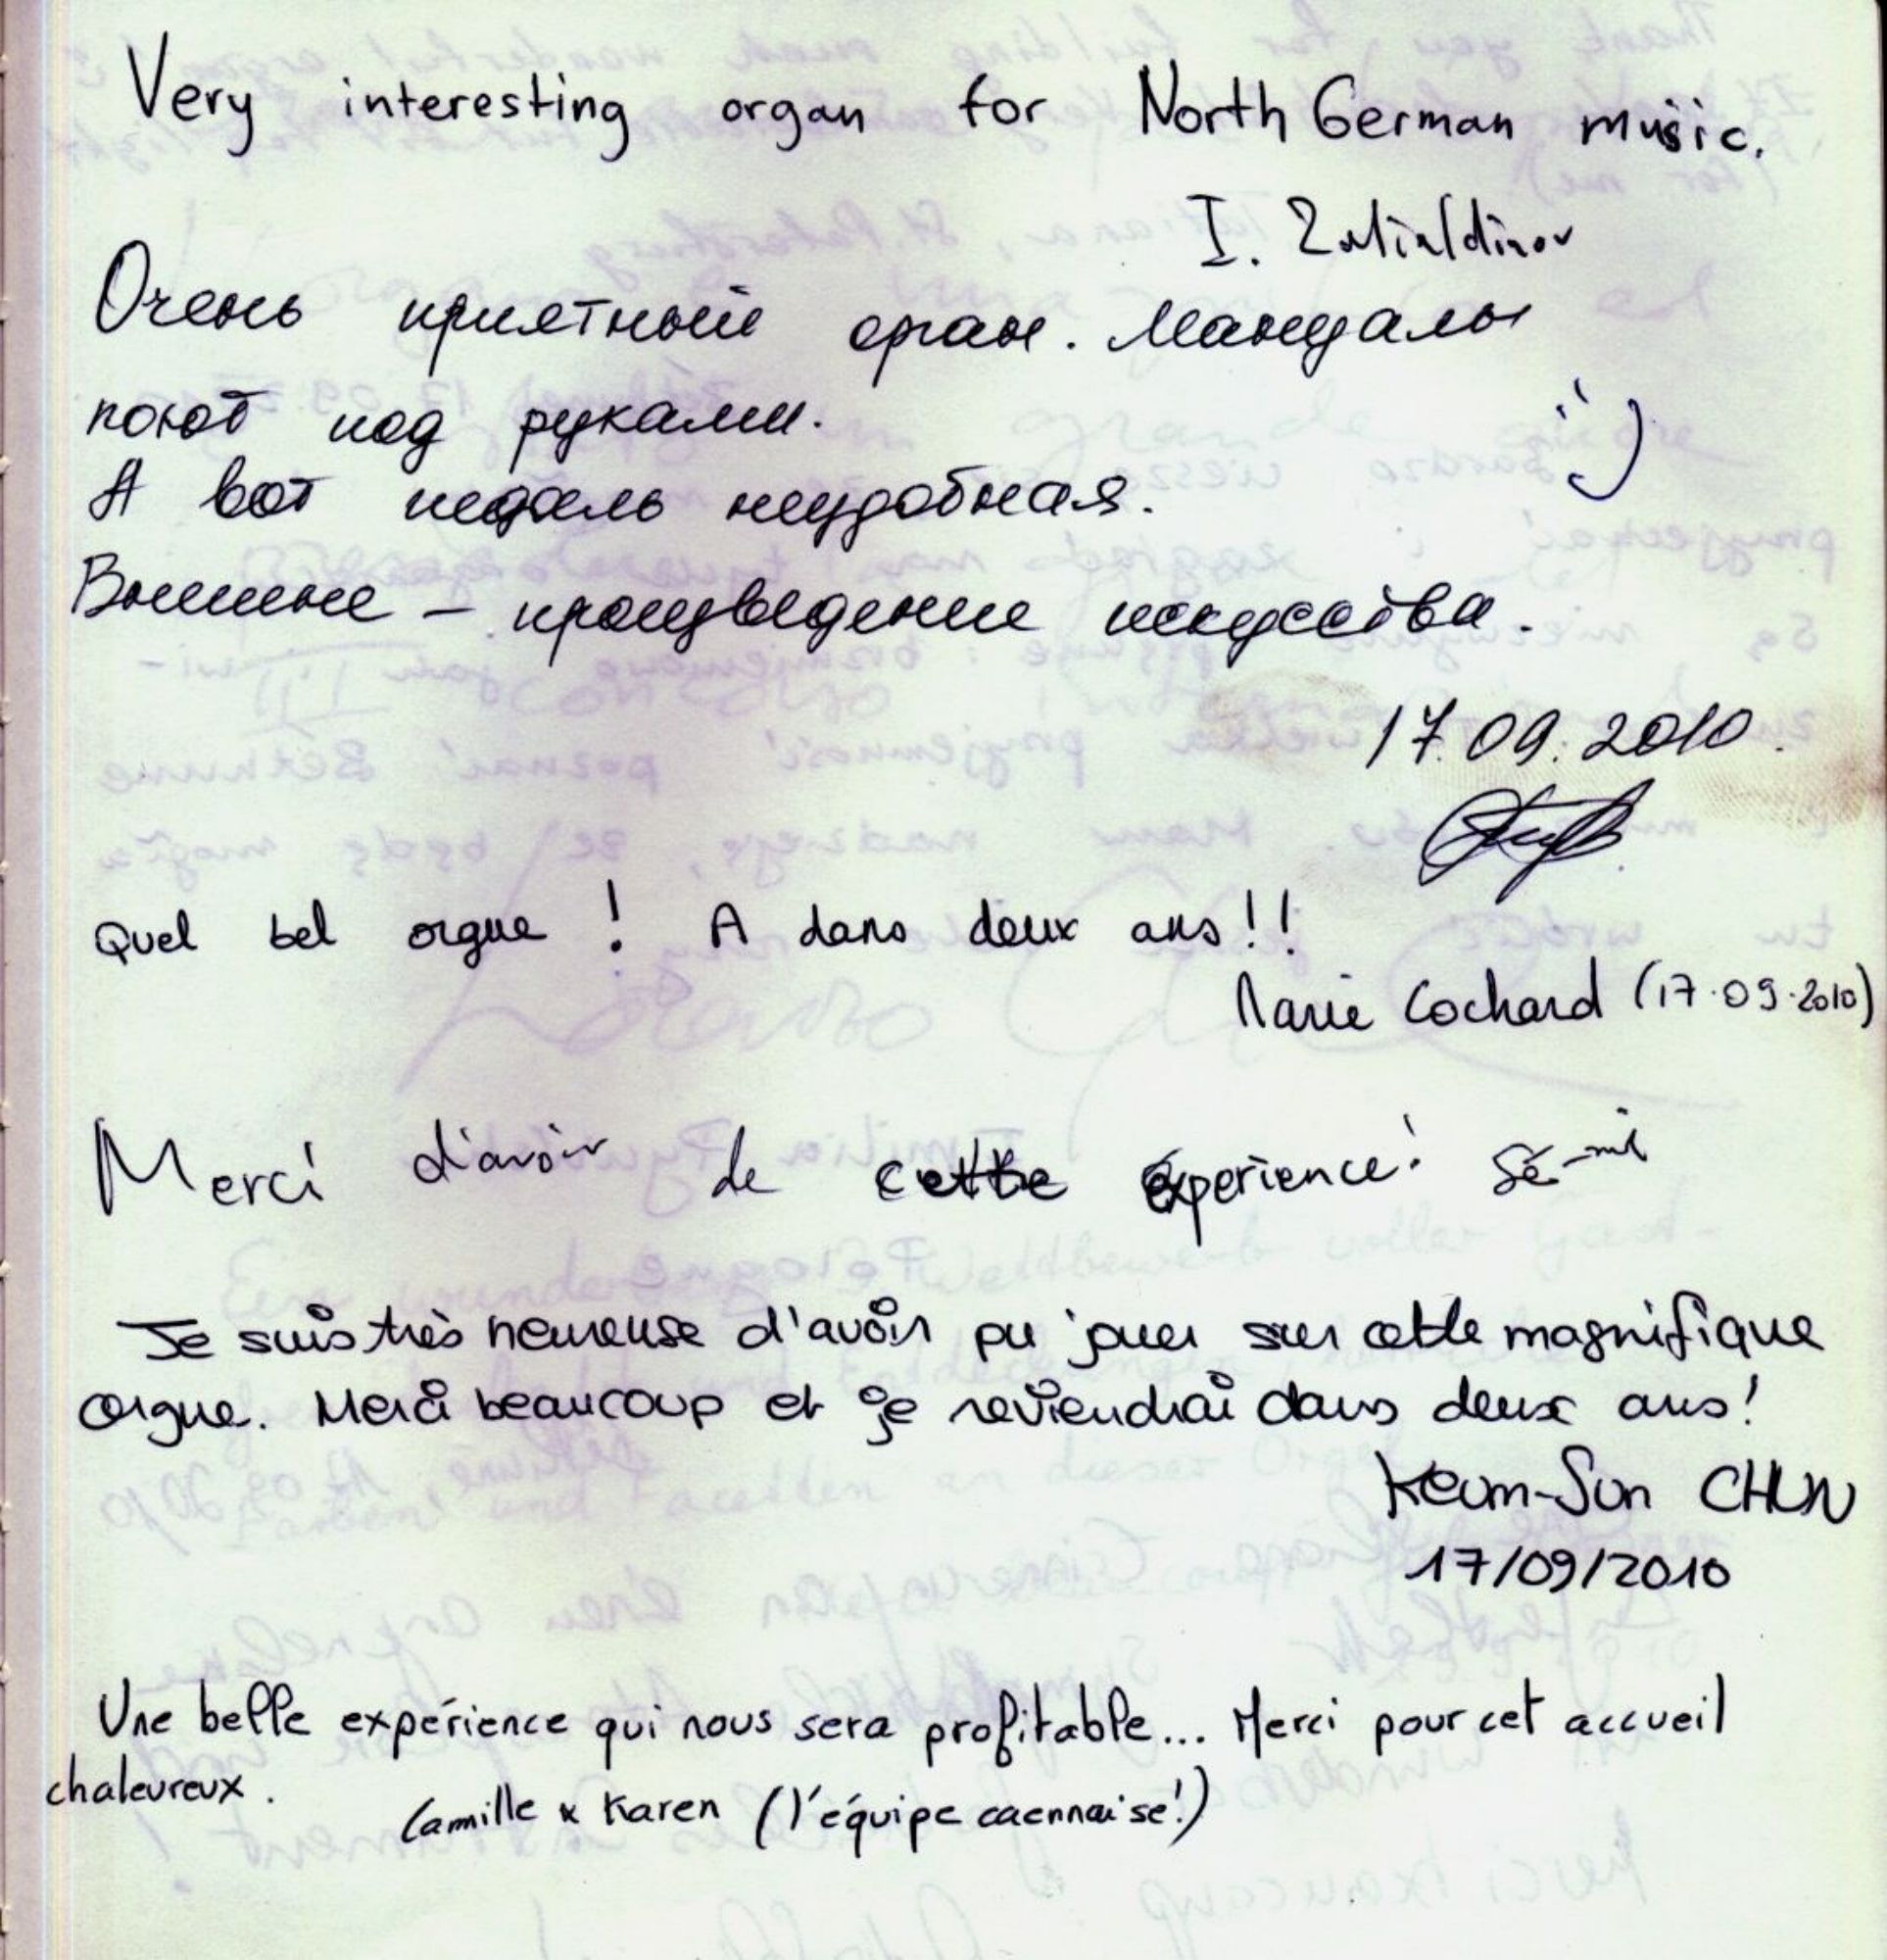 Very interesting organ for North German music.
I.
Очень приятный орган. Мануалы
поют под руками.
А вот педаль неудобная.
Внешне – произведение искусства.
17.09.2010.
Quel bel orgue ! A dans deux ans!!
Marie Cochard (17.09.2010)
Merci d'avoir de cette éxperience! Sé-mi
Je suis très heureuse d'avoir pu jouer sur cette magnifique
orgue. Merci beaucoup et je reviendrai dans deux ans!
Keum-Sun CHUN
17/09/2010
Une belle expérience qui nous sera profitable... Merci pour cet accueil
chaleureux.
Camille & Karen (l'équipe caennaise!)